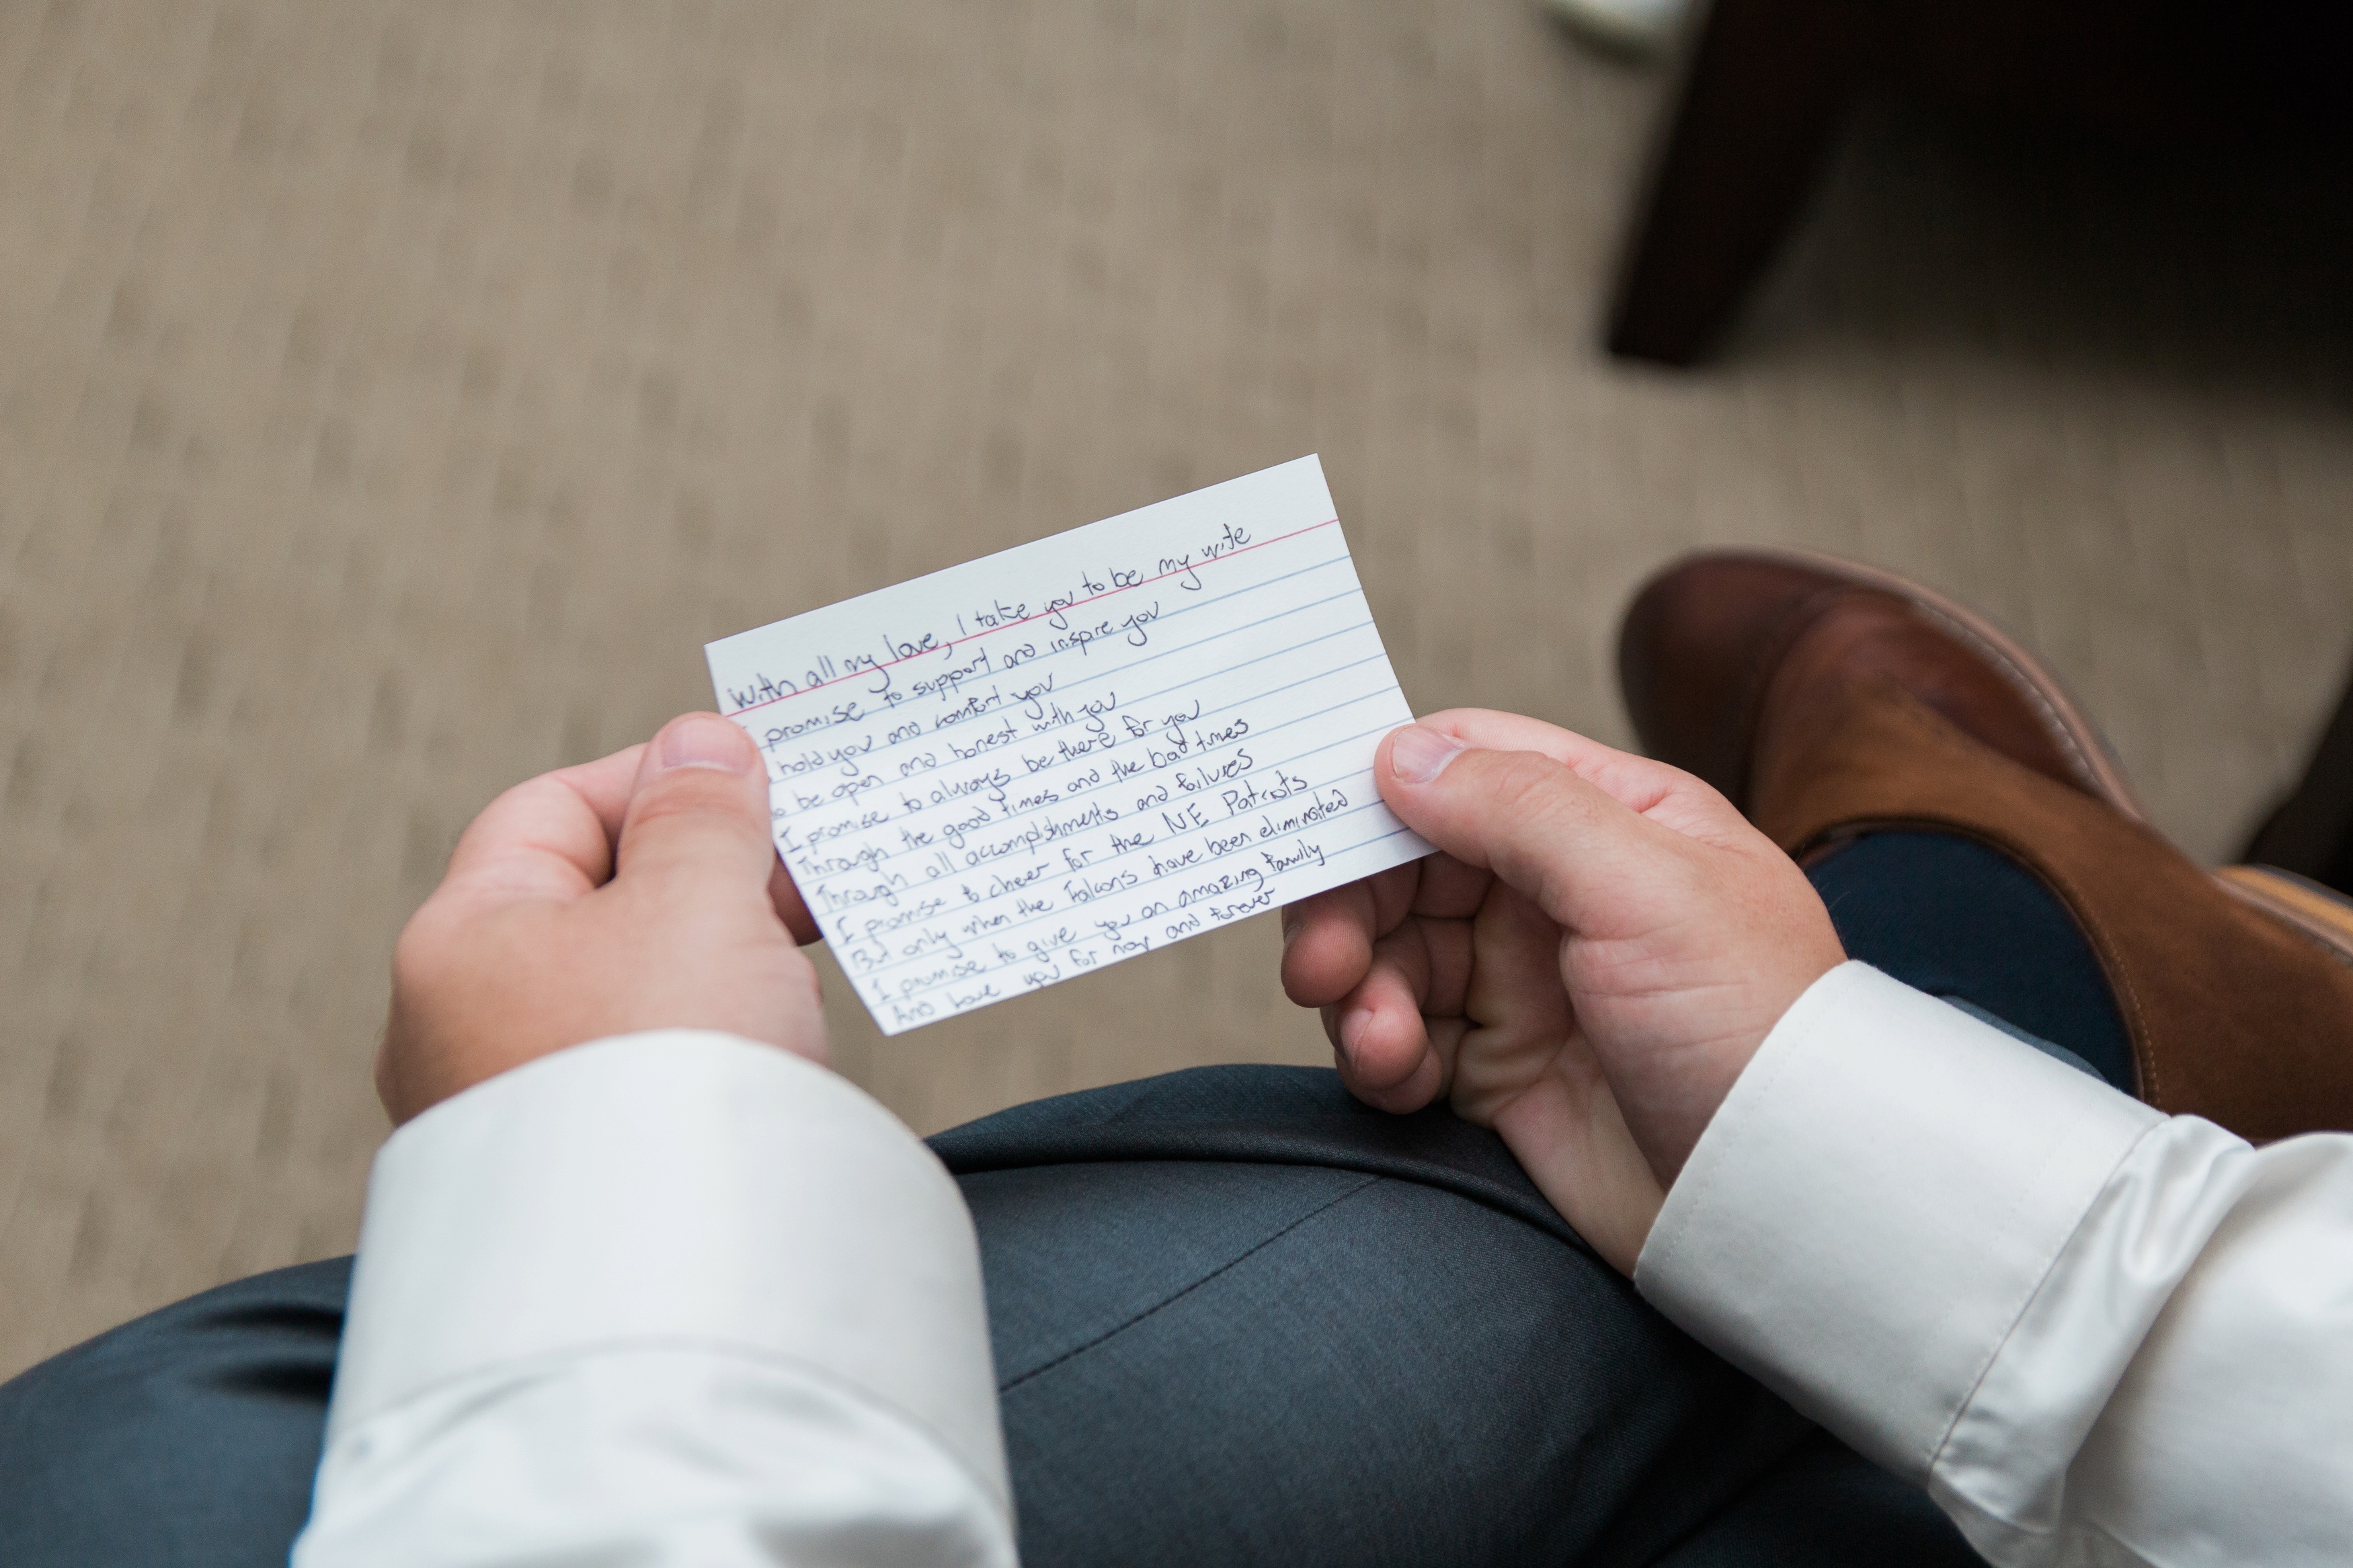 With all my love, I take you to be my wife
promise to support and inspire you
hold you and comfort you
be open and honest with you
I promise to always be there for you
Through the good times and the bad times
Through all accomplishments and failures
I promise to cheer for the NE Patriots
But only when the Falcons have been eliminated
I promise to give you an amazing family
And love you for now and forever